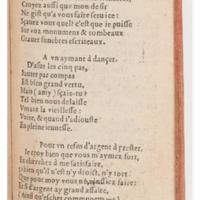 Croyez aussi que mon desir
Ne gist qu'a vous faire seruice:
Sçauez vous quel? c'est que ie puisse
Sur voz monumens & tombeaux
Grauer funebres escriteaux.
A vn aymant à dançer.
D'aller les cinq pas,
Sauter par compas
Est bien grand vertu,
Mais (amy) sçais-tu?
Tel bien nous delaisse
Venant la vieillesse:
Voire, & quand
En pleine ieunesse.
Pour vn refus d'argent à prester.
Ie croy bien que vous m'aymez fort,
Et cherchez à me satisfaire,
qu'il n'est n'y droict, n'y tort
Que pour moy vous ne faire:
Et si d'argent ay grand affaire,